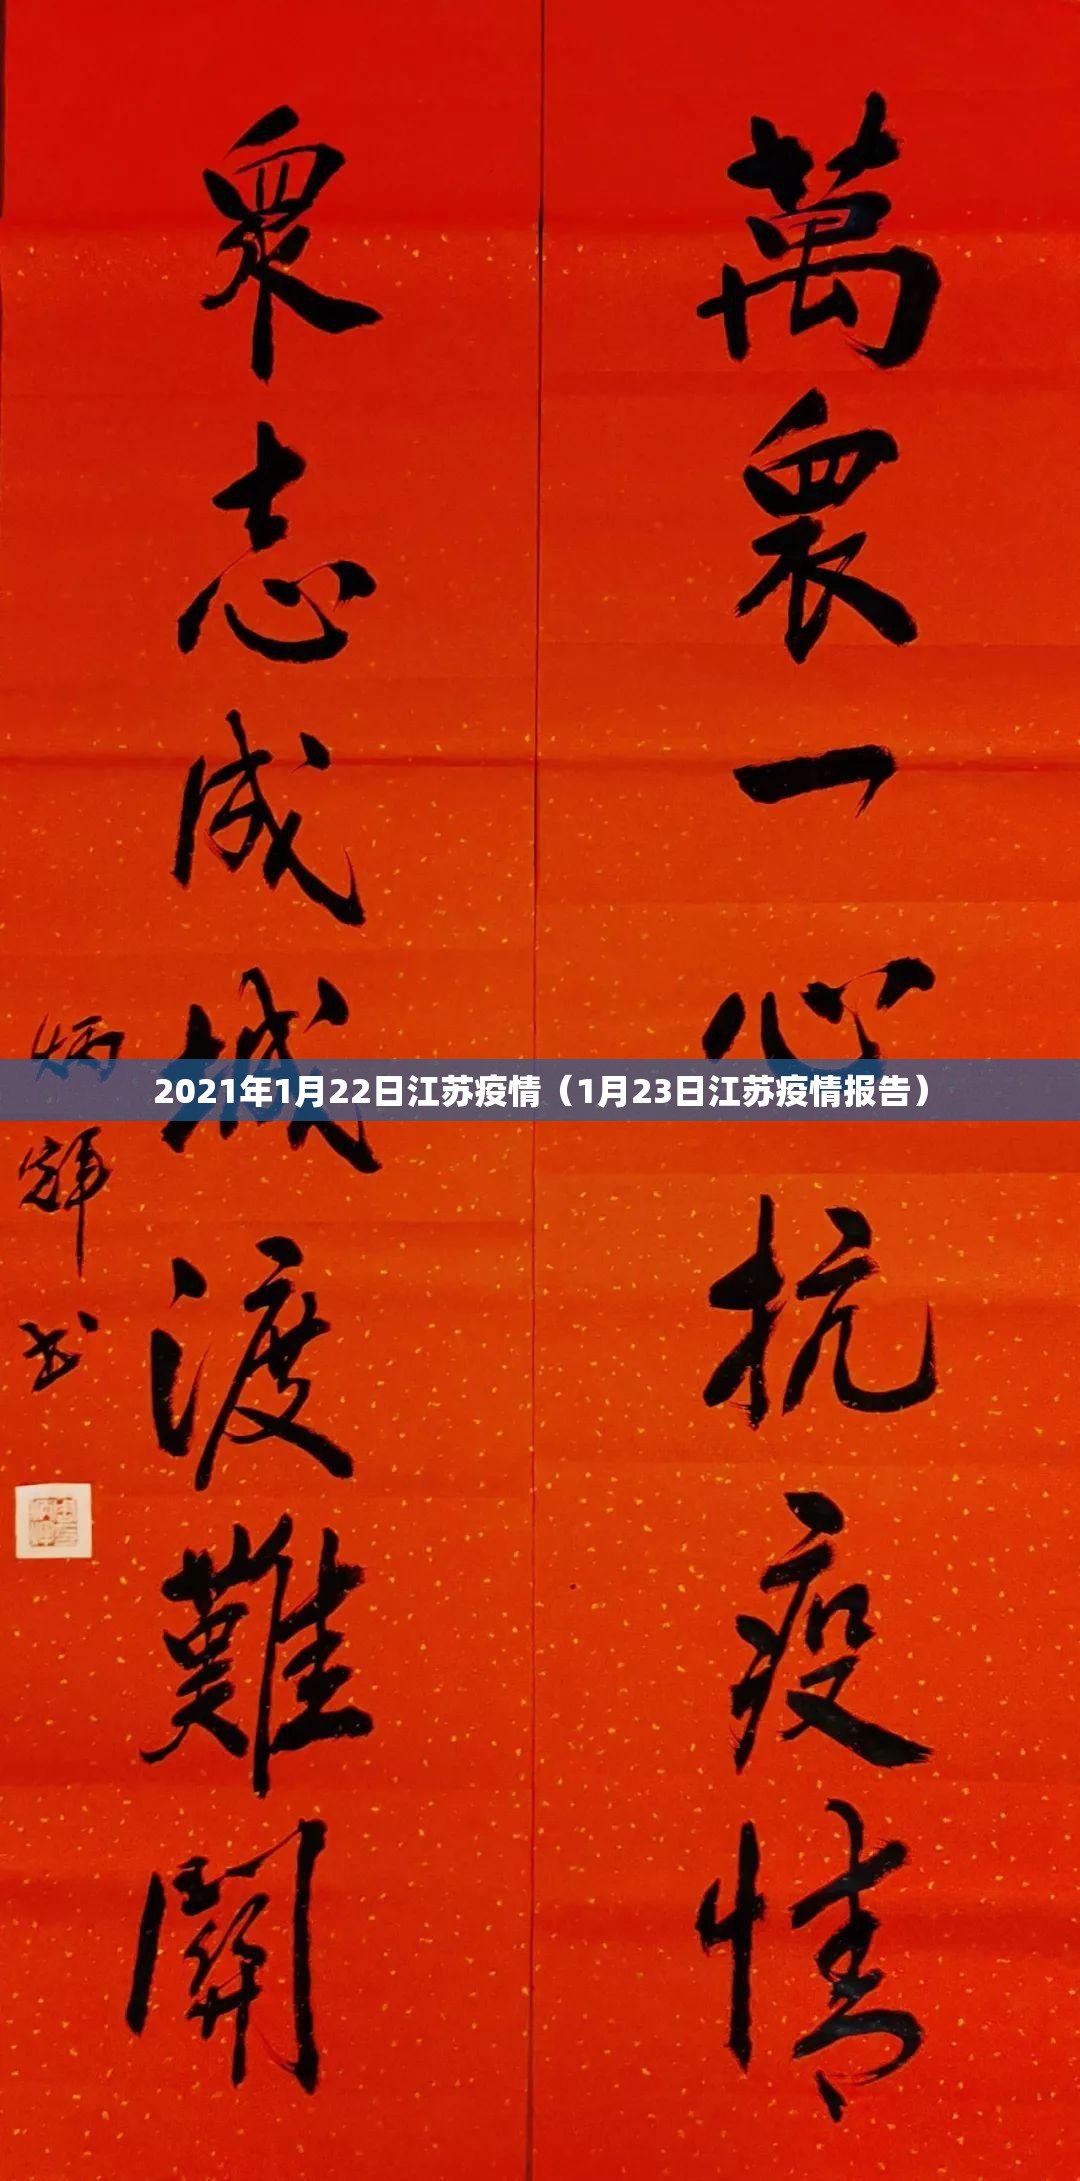 萬衆一心抗疫情
衆志成城渡難關
炳輝书
2021年1月22日江苏疫情（1月23日江苏疫情报告）